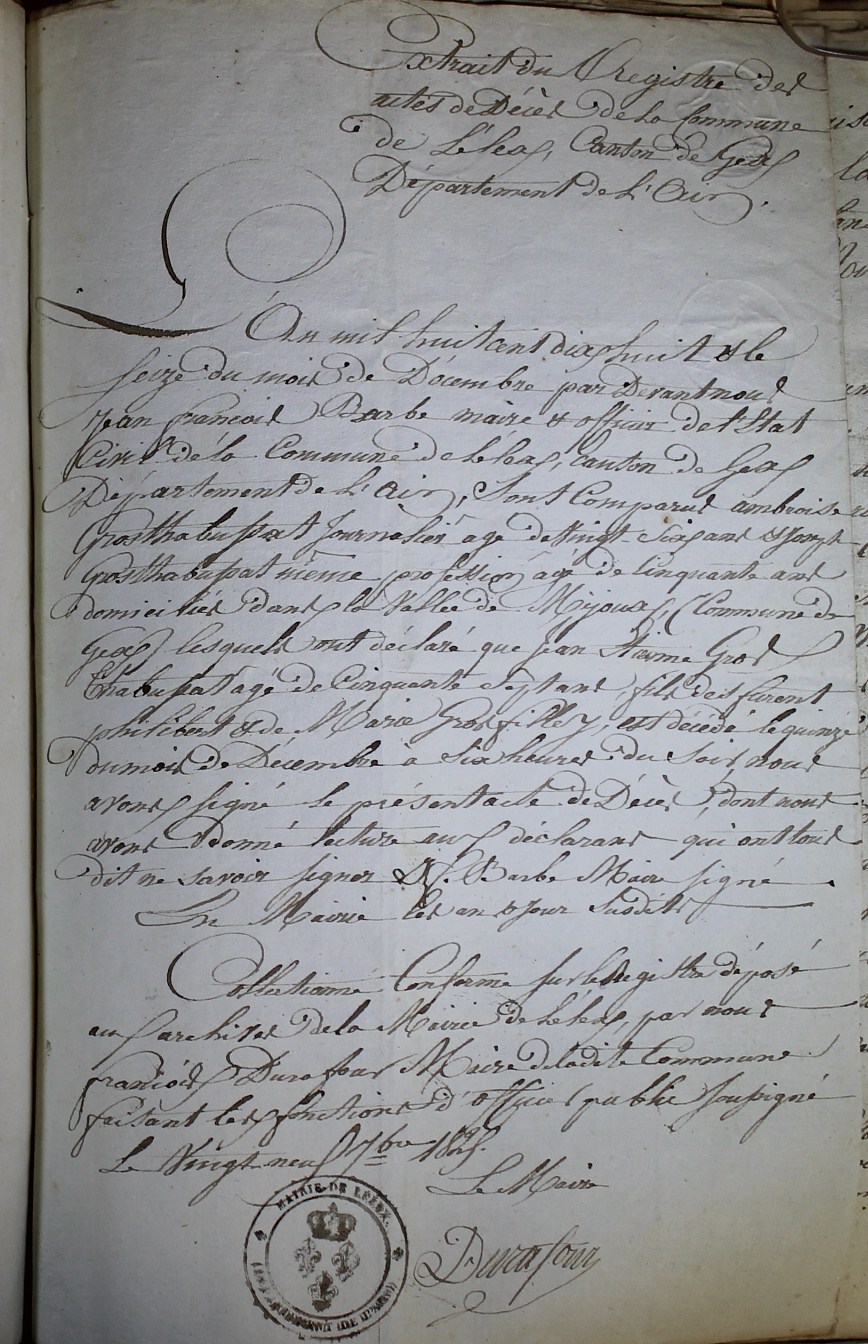 Extrait du Registre des
actes de Décès de la Commune
de Lélex, Canton de Gex
Département de L'Ain.
L'An mil huit cent dix huit & le
seize du mois de Décembre par Devant nous
jean françois Barbe maire & officier de l'Etat
Civil de la Commune de Lélex, canton de Gex
Département de L'Ain, sont Comparus ambroise
Grosthabussat Journalier agé de vingt six ans & Joseph
Grosthabussat même profession agé de Cinquante ans
domiciliés dans la Vallée de Mijoux, (Commune de
Gex) lesquels ont déclaré que jean Gros
Chabussat agé de Cinquante Sept ans, fils des furent
philibert & de Marie Grosfilley, est décédé le quinze
du mois de Décembre à Six heures du Soir, nous
avons signé le présent acte de Décès, dont nous
avons donné lecture aux déclarans qui ont tous
dit ne savoir signer Barbe Maire signé
En Mairie les an & Jour Susdits
Collectionné Conforme sur le Registre déposé
aux archives de la Mairie de Lélex, par nous
françois Durafour Maire de ladite Commune
faisant les fonctions d'officier public soussigné
Le Vingt neuf 7bre
Le Maire
Durafour
MAIRIE DE LELEX.